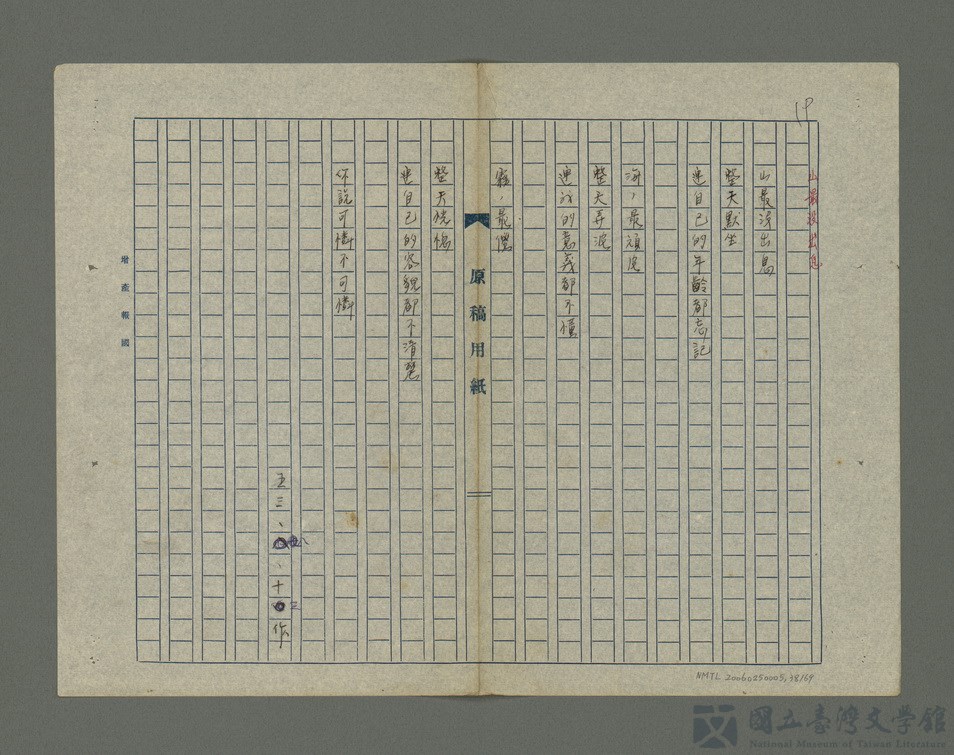 19
山最沒出息
山最沒出息
整天默坐
連自己的年齡都忘記
海，最頑皮
整天弄浪
連詩的意義都不懂
霧，最傻
整天恍惚
連自己的容貌都不清楚
你說可憐不可憐
五三、
、十
作
原稿用紙
增產報國
NMTL 20060250005,38/69
國立臺灣文學館
National Museum of Taiwan Literature